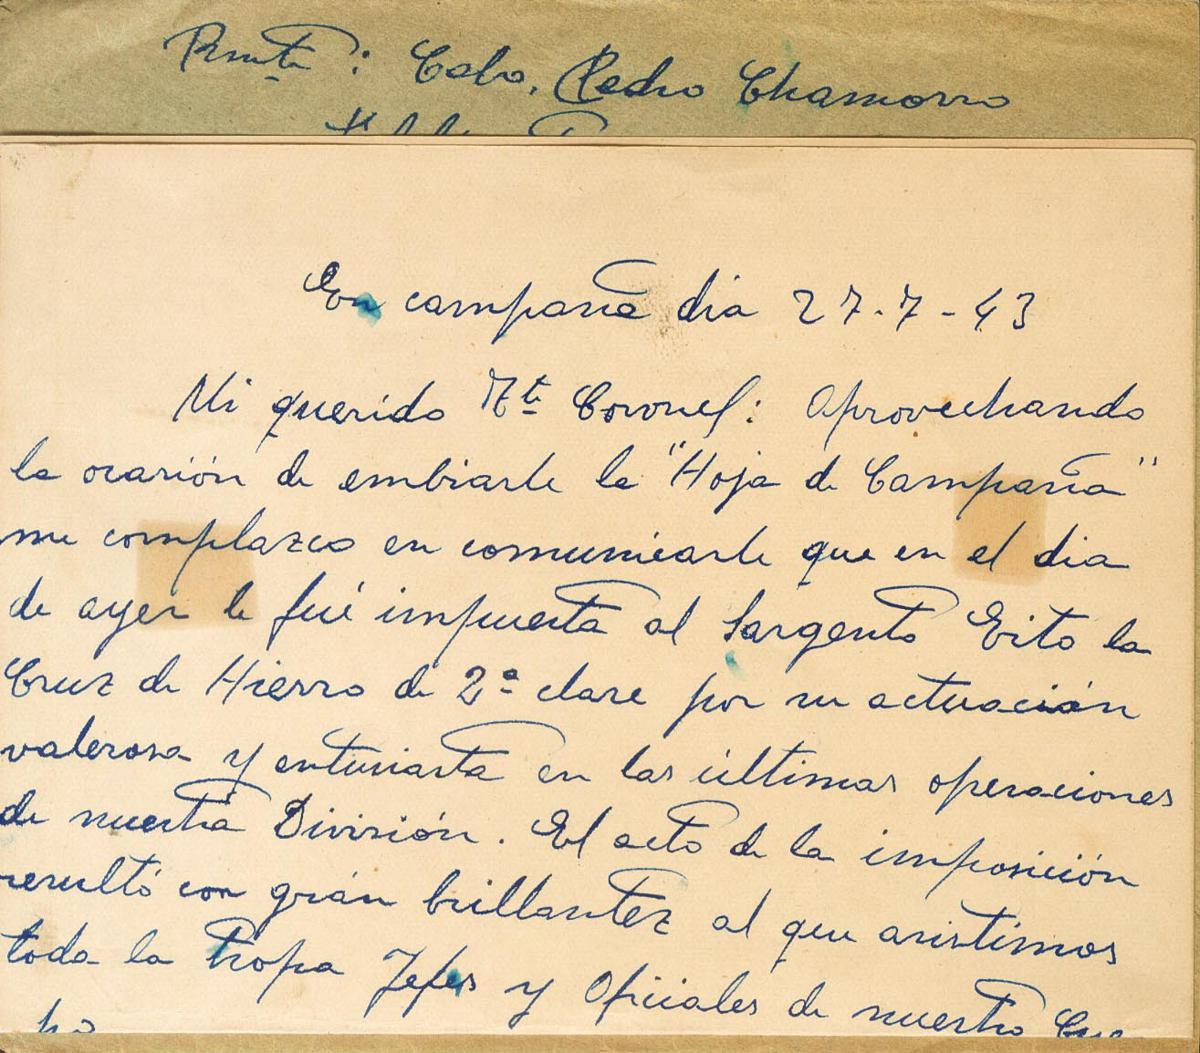 Rmte: Cabo, Pedro Chamorro
En campaña dia 27-7-43
Mi querido Tte Coronel: Aprovechando
la ocasión de embiarle la "Hoja de Campaña"
me complazco en comunicarle que en el dia
de ayer le fué impuesta al Sargento Eito la
Cruz de Hierro de 2ª clase por su actuación
valerosa y entusiasta en las últimas operaciones
de nuestra División. El acto de la imposición
resultó con grán brillantez al que asistimos
toda la tropa Jefes y Oficiales de nuestro Cuer
po